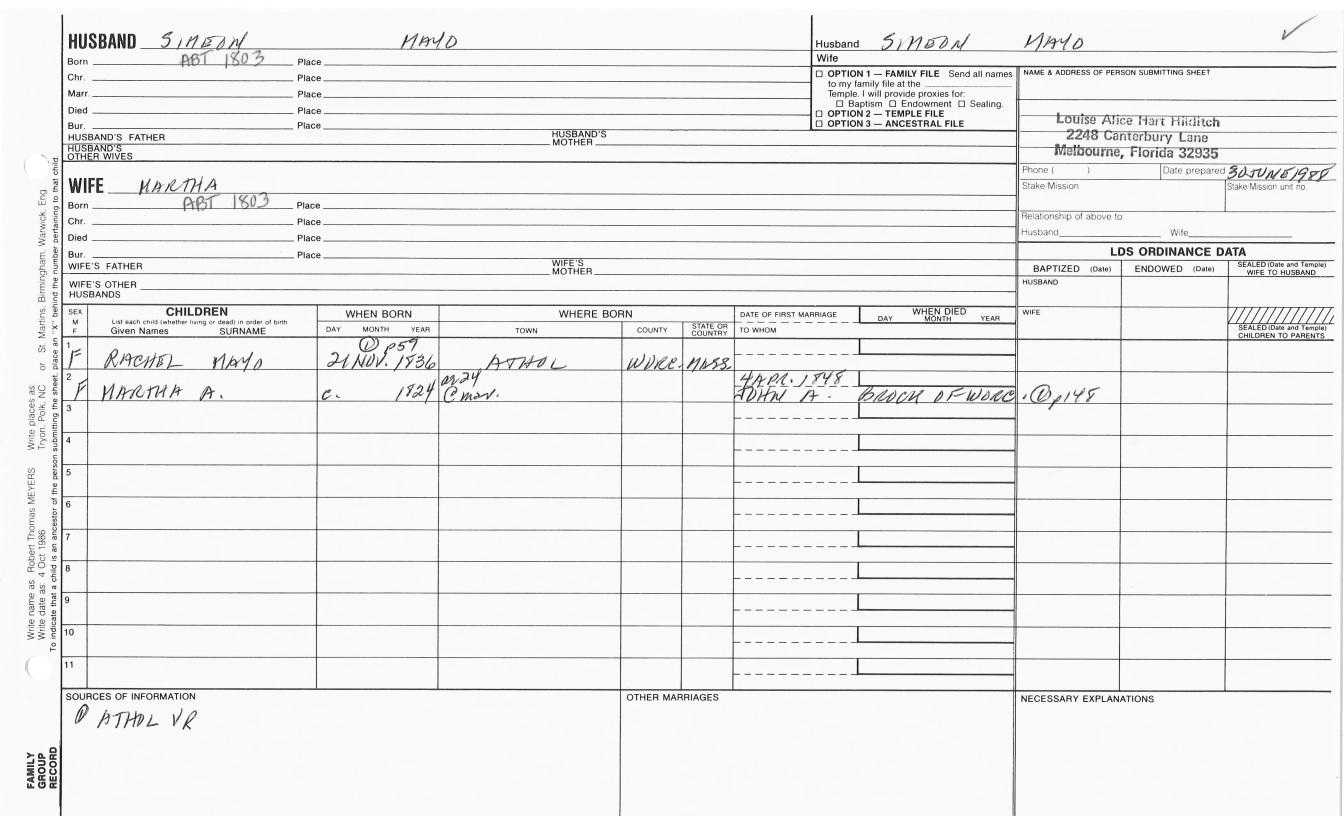 HUSBAND SIMEON MAYO
Born ABT 1803 Place
Chr. Place
Marr. Place
Died Place
Bur. Place
HUSBAND'S FATHER HUSBAND'S MOTHER
HUSBAND'S OTHER WIVES
Husband SIMEON MAYO
Wife
OPTION 1 — FAMILY FILE Send all names
to my family file at the
Temple. I will provide proxies for:
Baptism Endowment Sealing.
OPTION 2 — TEMPLE FILE
OPTION 3 — ANCESTRAL FILE
NAME & ADDRESS OF PERSON SUBMITTING SHEET
Louise Alice Hart Hilditch
2248 Canterbury Lane
Melbourne, Florida 32935
Phone ( ) Date prepared 30 JUNE 1988
Stake Mission Stake Mission unit no.
Relationship of above to
Husband Wife
WIFE MARTHA
Born ABT 1803 Place
Chr. Place
Died Place
Bur. Place
WIFE'S FATHER WIFE'S MOTHER
WIFE'S OTHER HUSBANDS
LDS ORDINANCE DATA
BAPTIZED (Date) ENDOWED (Date) SEALED (Date and Temple) WIFE TO HUSBAND
HUSBAND
WIFE
SEALED (Date and Temple) CHILDREN TO PARENTS
SEX M F
CHILDREN
List each child (whether living or dead) in order of birth
Given Names SURNAME
WHEN BORN
DAY MONTH YEAR
WHERE BORN
TOWN COUNTY STATE OR COUNTRY
DATE OF FIRST MARRIAGE
TO WHOM
WHEN DIED
DAY MONTH YEAR
① p59
1 F RACHEL MAYO 21 NOV. 1836 ATHOL WORC. MASS.
or 24 4 APR. 1848
2 F MARTHA A. c. 1824 @ mar. JOHN A. BROCK OF WORC. ① p148
3
4
5
6
7
8
9
10
11
SOURCES OF INFORMATION
① ATHOL VR
OTHER MARRIAGES
NECESSARY EXPLANATIONS
Write name as: Robert Thomas MEYERS Write places as: Tryon, Polk, NC or St. Martins, Birmingham, Warwick, Eng
Write date as: 4 Oct 1986
To indicate that a child is an ancestor of the person submitting the sheet, place an "X" behind the number pertaining to that child
FAMILY
GROUP
RECORD